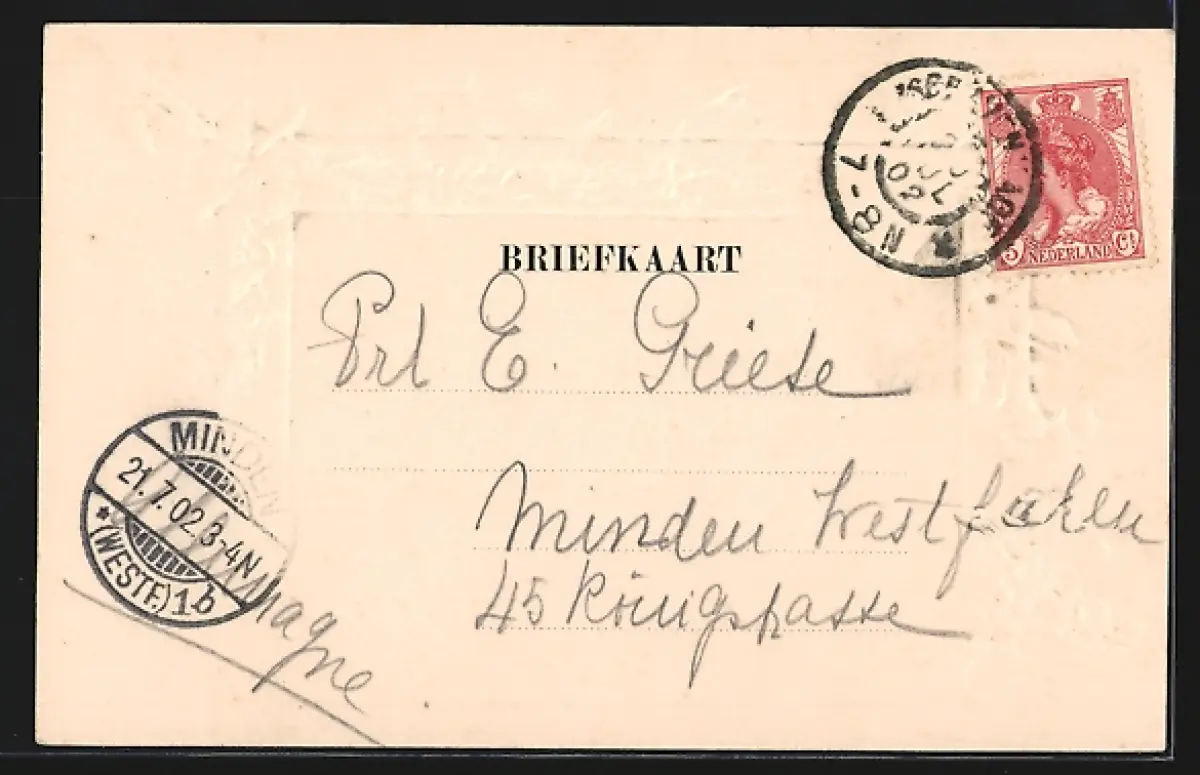 BRIEFKAART
5 NEDERLAND Ct
7-8 N
JUL
02
Frl E. Griese
Minden Westfahlen
45 Königstrasse
MINDEN
21.7.02.3-4N
* (WESTF.) 1b